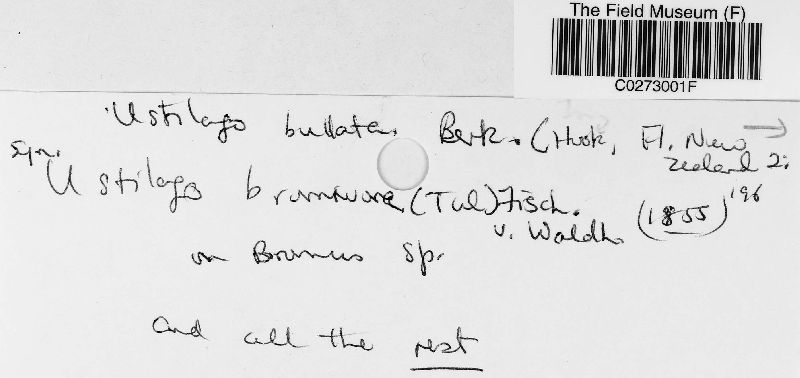 The Field Museum (F)
C0273001F
Ustilago bullata. Berk. (Hook, Fl. New →
Zealand 2:
196
syn.
Ustilago bromivora (Tul) Fisch.
v. Waldh. (1855)
on Bromus sp.
and all the rest